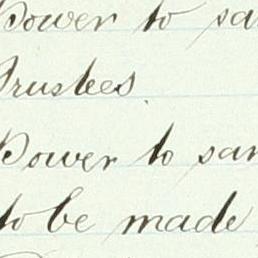 Power to sa
Trustees
Power to san
to be made